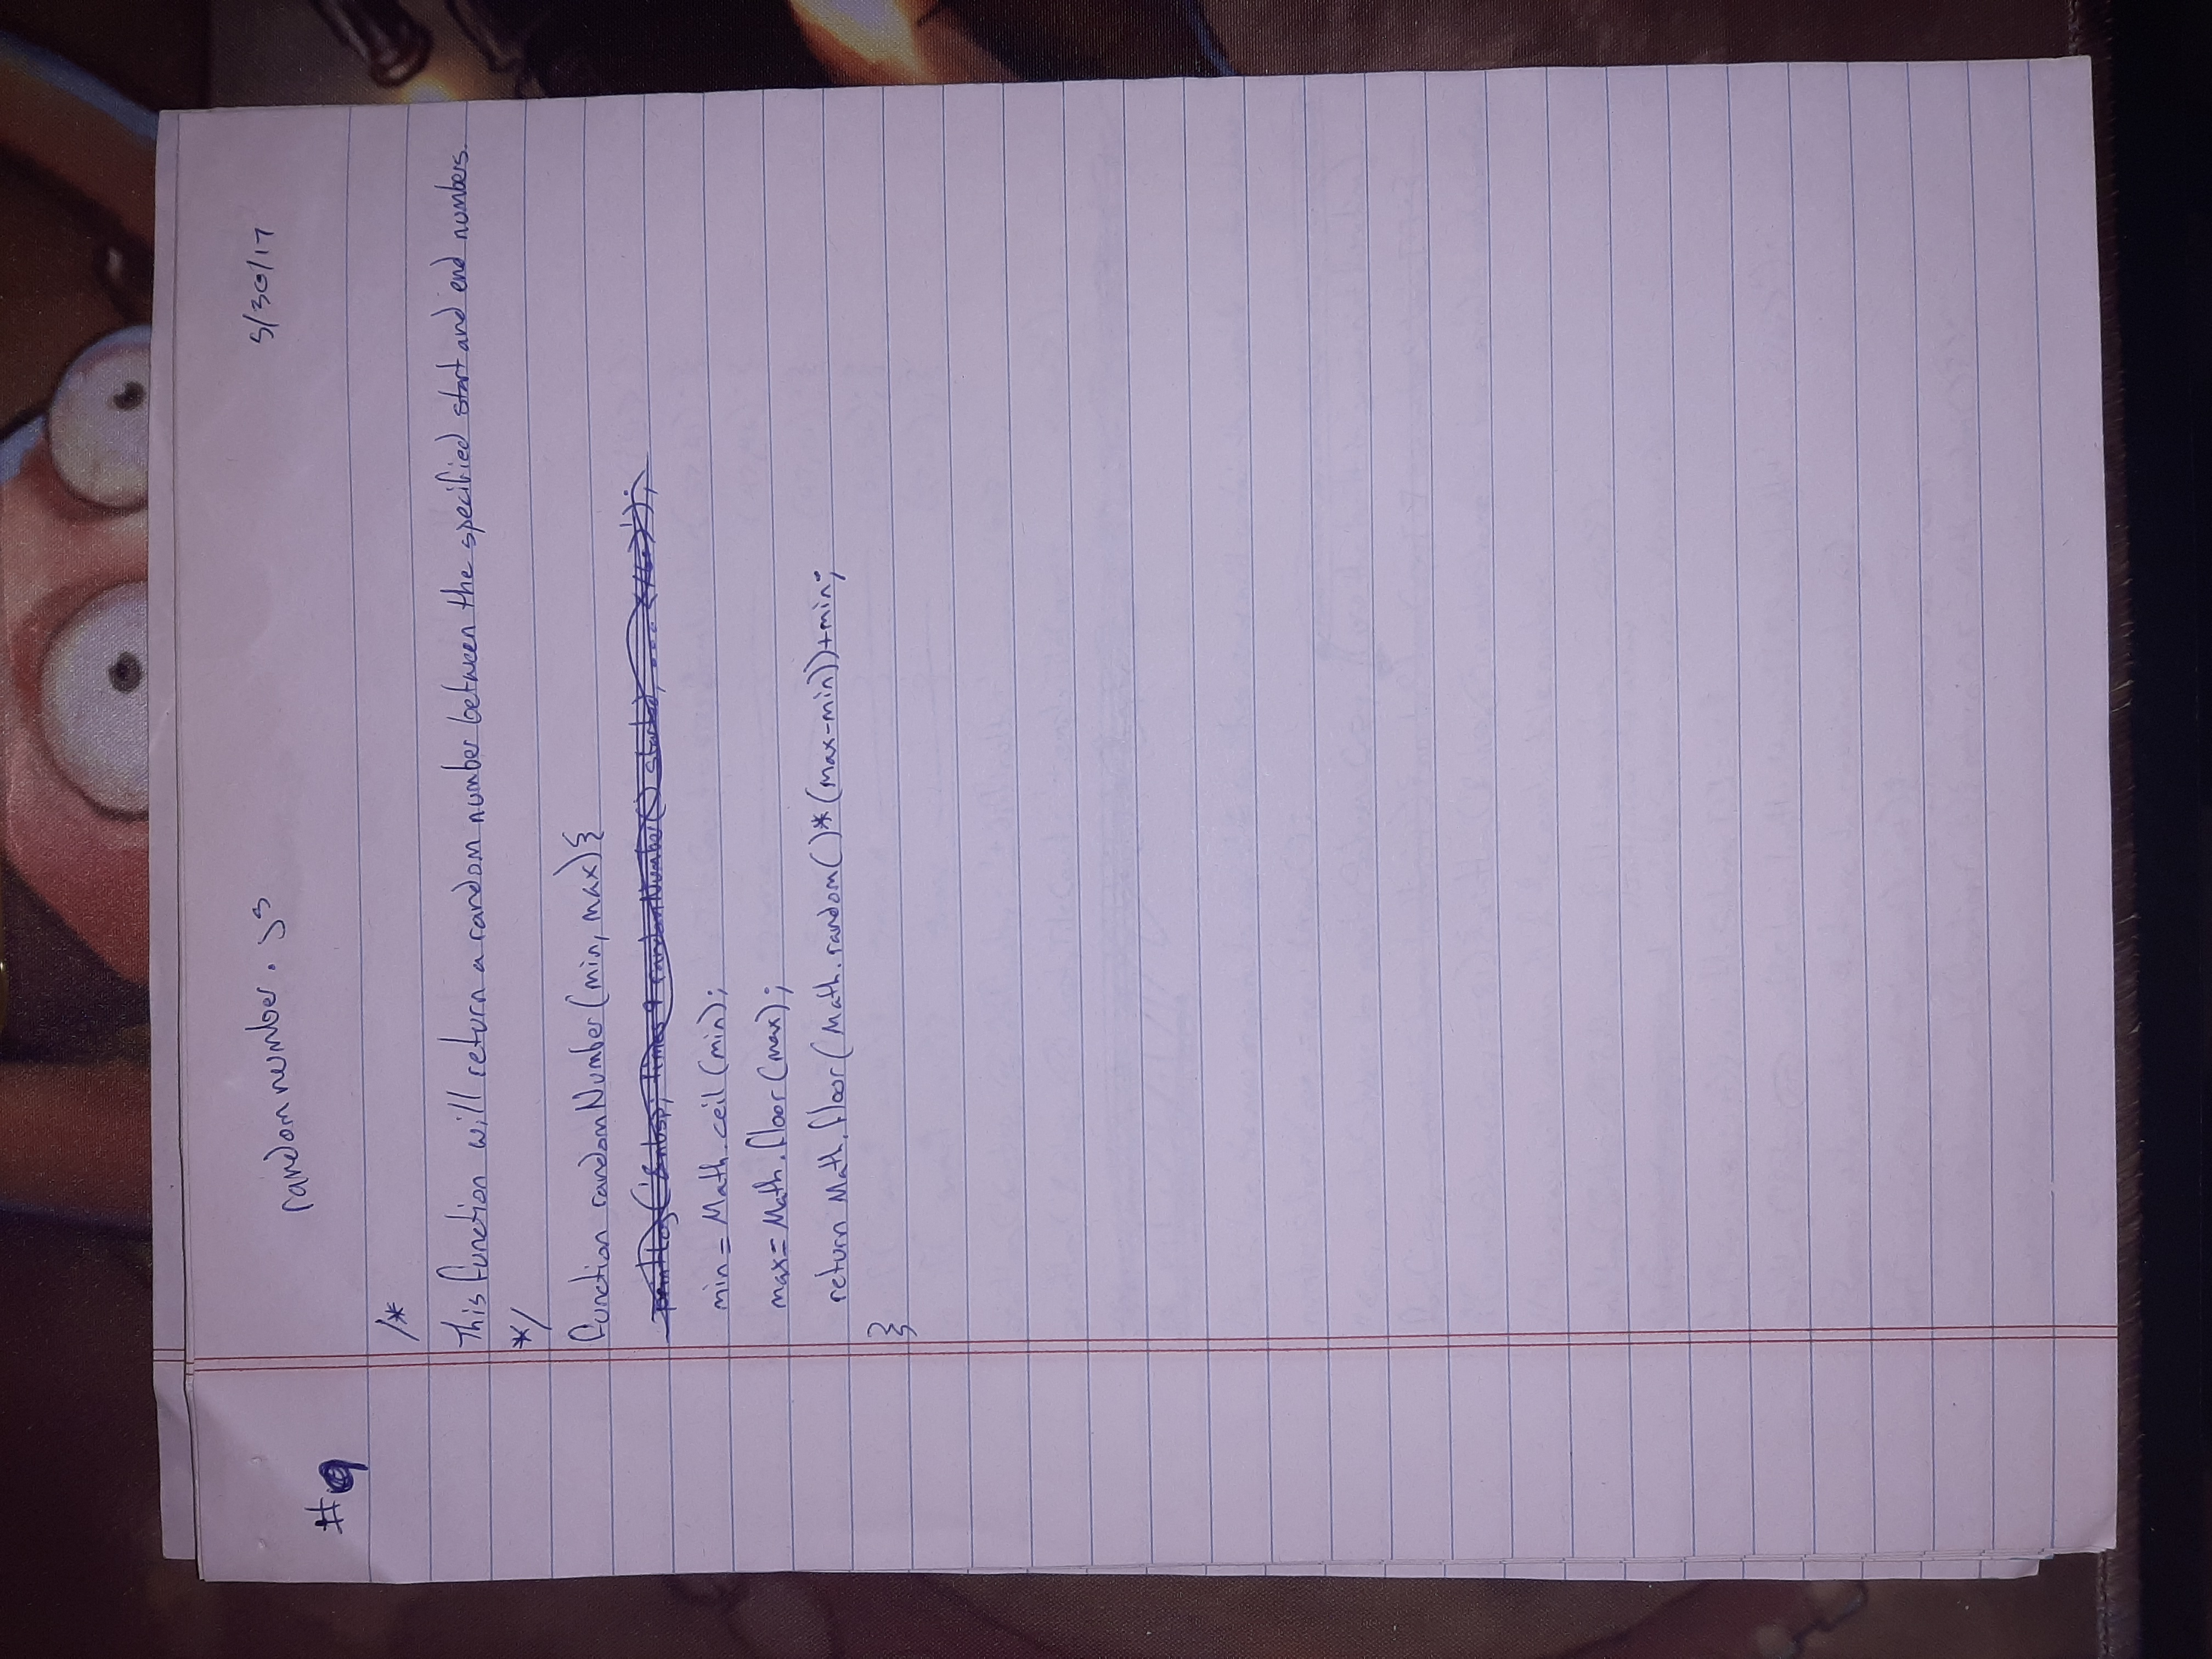 randomnumber.js
5/30/17
#9
/*
This function will return a random number between the specified start and end numbers.
*/
function randomNumber(min, max){
printLog('&nbsp; times 9 randomNumber() started, ... </br>');
min = Math.ceil(min);
max = Math.floor(max);
return Math.floor(Math.random()*(max-min))+min;
}